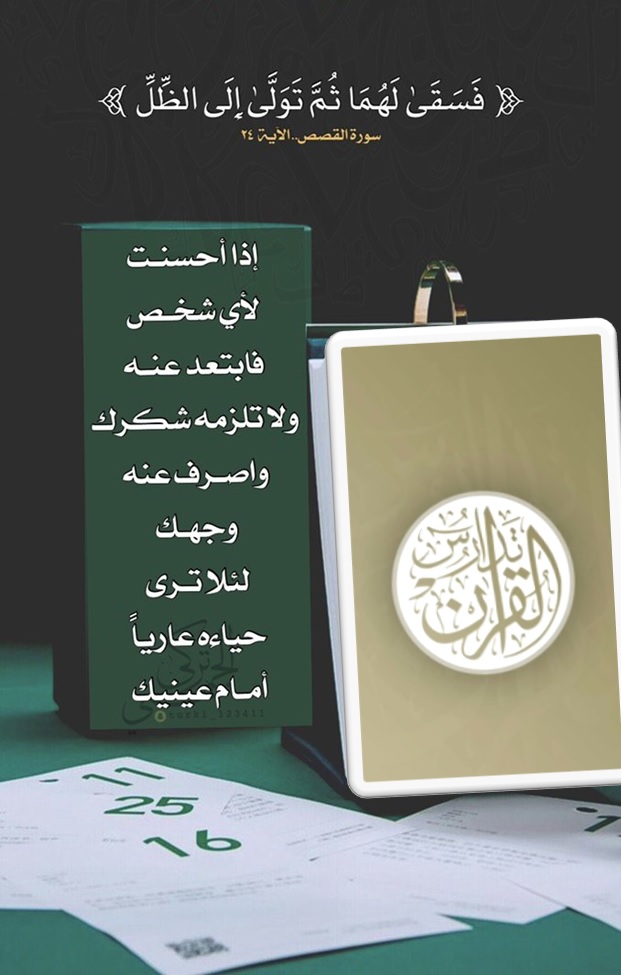 ﴿ فَسَقَىٰ لَهُمَا ثُمَّ تَوَلَّىٰ إِلَى الظِّلِّ ﴾
سورة القصص..الآية ٢٤
إذا أحسنت
لأي شخص
فابتعد عنه
ولا تلزمه شكرك
واصرف عنه
وجهك
لئلا ترى
حياءه عارياً
أمام عينيك
تدارس
القرآن
11
25
16